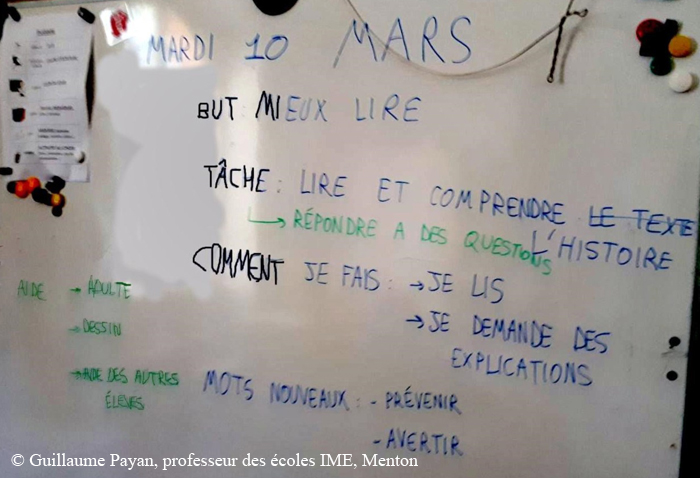 MARDI 10 MARS
BUT MIEUX LIRE
TÂCHE : LIRE ET COMPRENDRE LE TEXTE
L'HISTOIRE
↳ RÉPONDRE A DES QUESTIONS
COMMENT JE FAIS : → JE LIS
→ JE DEMANDE DES
EXPLICATIONS
AIDE → ADULTE
→ DESSIN
→ AIDE DES AUTRES
ÉLEVES
MOTS NOUVEAUX : - PRÉVENIR
- AVERTIR
© Guillaume Payan, professeur des écoles IME, Menton